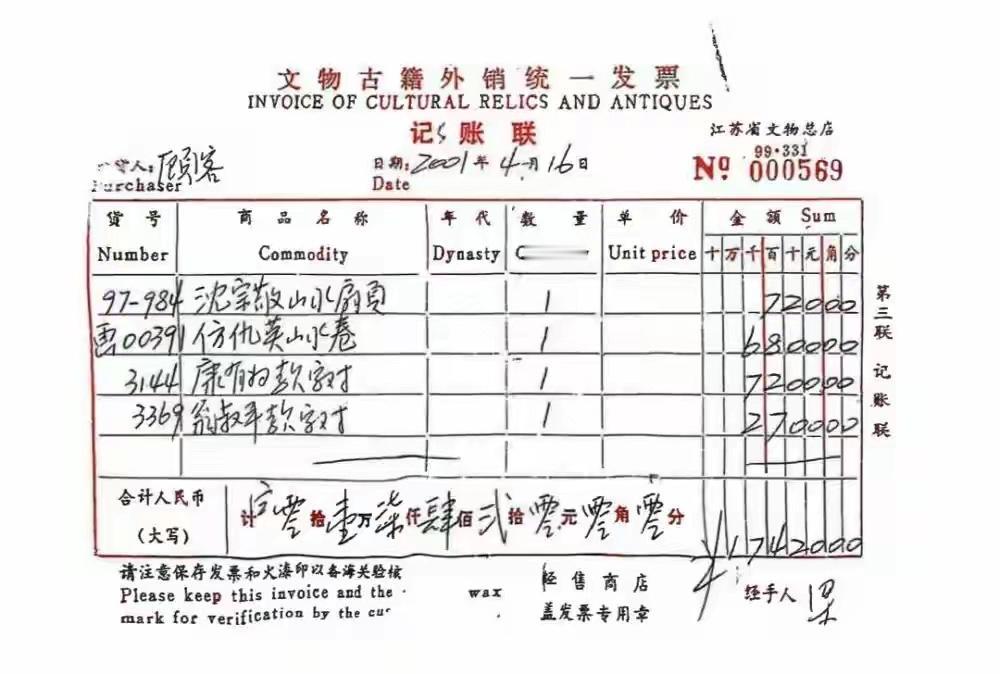 文物古籍外销统一发票
INVOICE OF CULTURAL RELICS AND ANTIQUES
记账联
江苏省文物总店
99·331
人: 顾客
日期: 2001年4月16日
№ 000569
Purchaser
Date
货号 商品名称 年代 数量 单价 金额 Sum
Number Commodity Dynasty Unit price 十万千百十元角分
97-984 沈宗敬山水扇页 1 72000
画00391 仿仇英山水卷 1 680000
3144 康有为款字对 1 720000
3369 翁叔平款字对 1 270000
第三联 记账联
合计人民币 计 零拾壹万柒仟肆佰贰拾零元零角零分
(大写) ¥1742000
请注意保存发票和火漆印以备海关验核 经售商店 经手人
Please keep this invoice and the wax 盖发票专用章
mark for verification by the